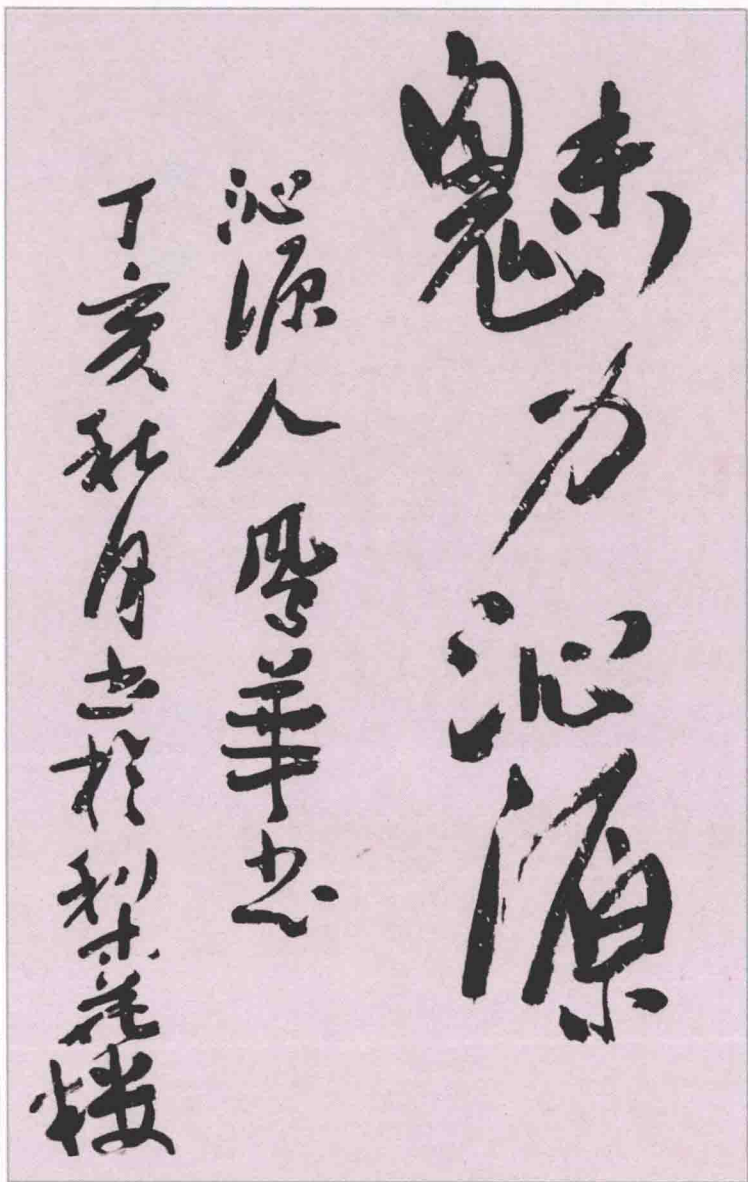 魅力沁源
沁源人 凤華书
丁亥秋月书於梨花楼